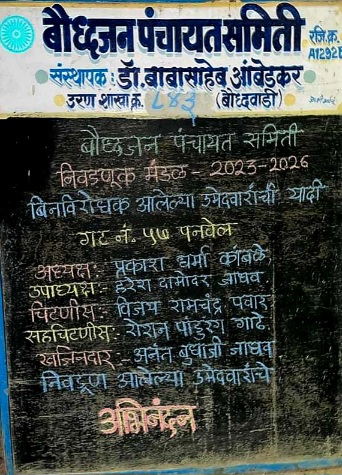 बौध्दजन पंचायत समिती
रजि.क्र.
A1292B
संस्थापक : डॉ. बाबासाहेब आंबेडकर
उरण शाखा क्र. ८४३ (बौध्दवाडी)
बौध्दजन पंचायत समिती
निवडणूक मंडळ - २०२३-२०२६
बिनविरोधक आलेल्या उमेदवारांची यादी
गट नं. ५७ पनवेल
अध्यक्ष:- प्रकाश धर्मा कांबळे,
उपाध्यक्ष:- हरेश दामोदर जाधव
चिटणीस:- विजय रामचंद्र पवार
सहचिटणीस:- रोशन पांडुरंग गाढे.
खजिनदार - अनंत बुधाजी जाधव
निवडूण आलेल्या उमेदवारांचे
अभिनंदन